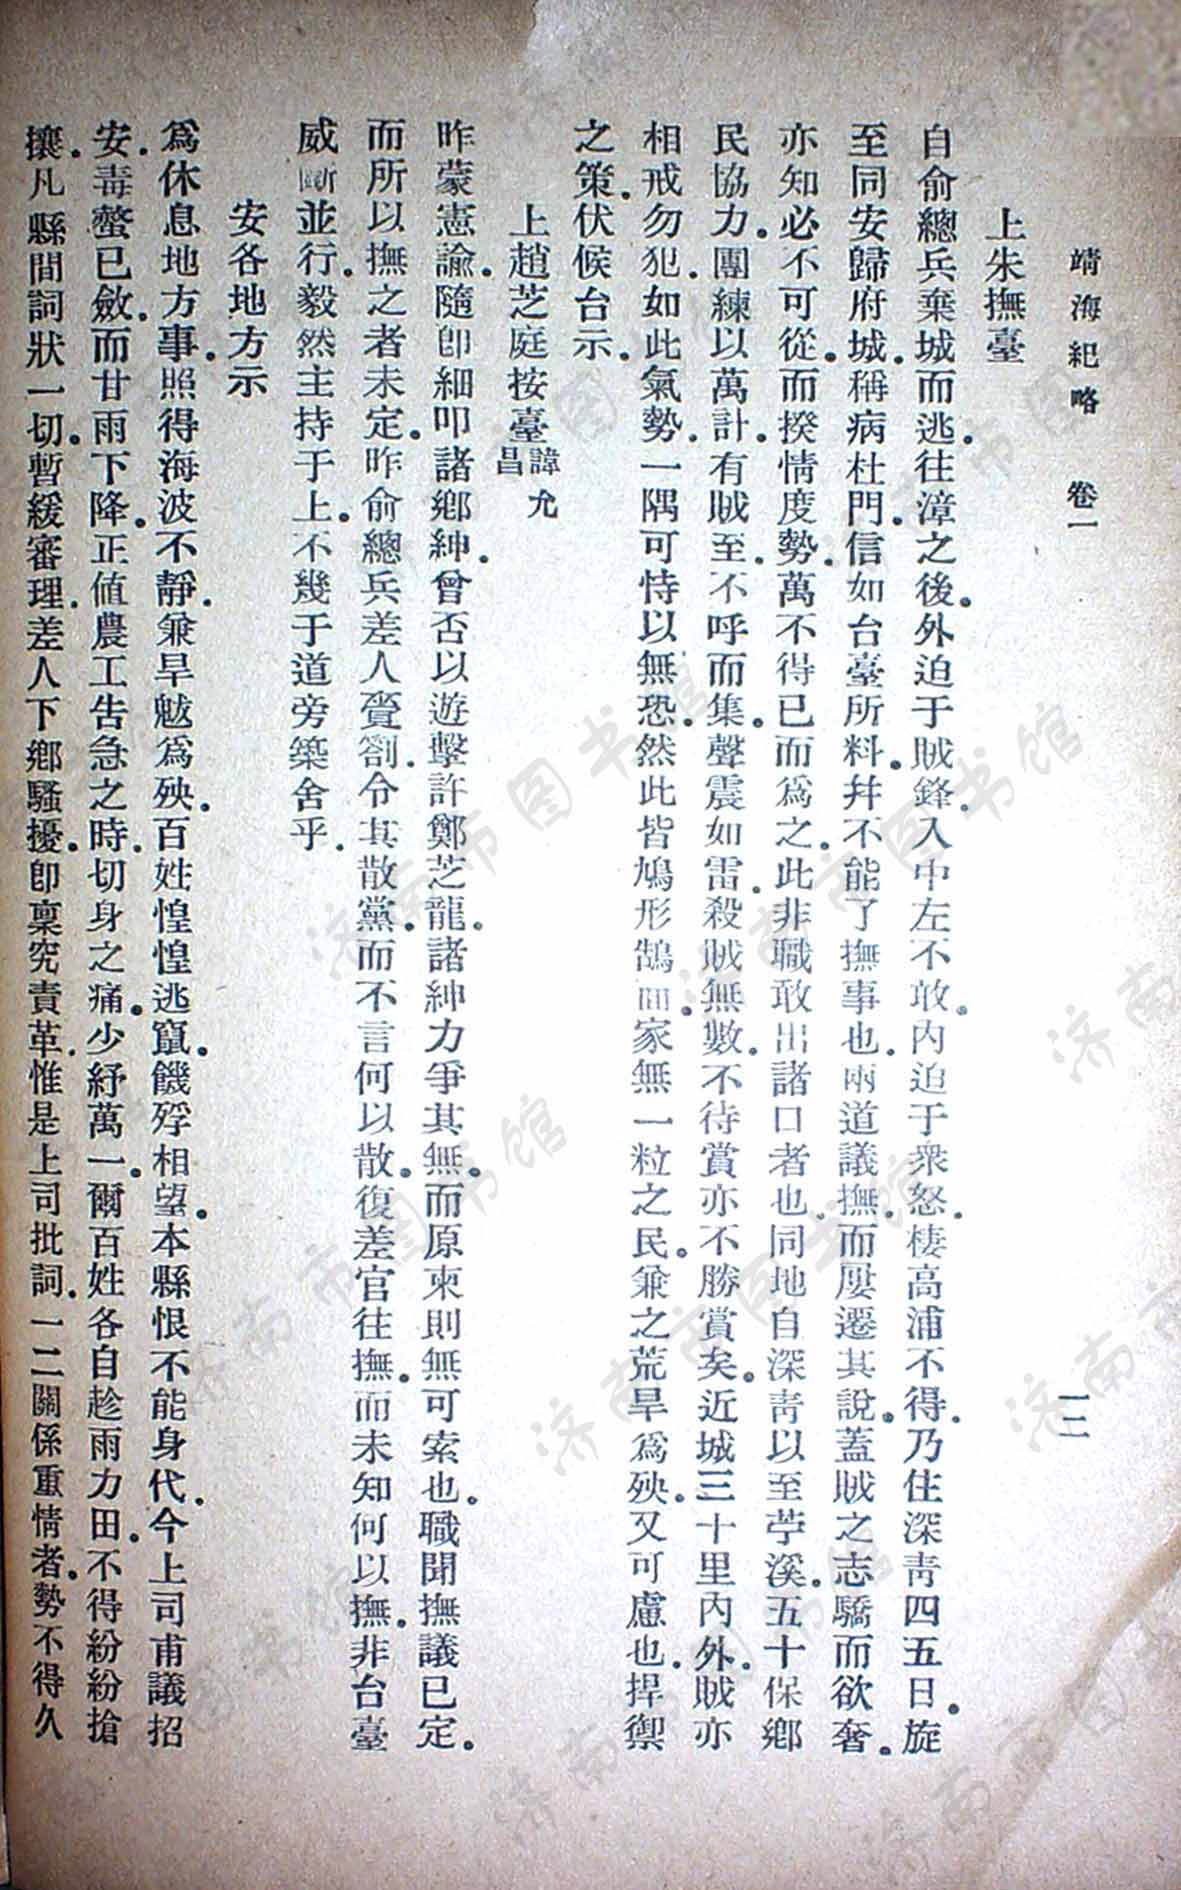 靖海紀略　卷一　一二
上朱撫臺
自俞總兵棄城而逃。往漳之後。外迫于賊鋒。入中左不敢。內迫于衆怒。棲高浦不得。乃住深青四五日。旋
至同安歸府城。稱病杜門。信如台臺所料。幷不能了撫事也。兩道議撫。而屢遷其說。蓋賊之志驕而欲奢。
亦知必不可從。而揆情度勢。萬不得已而爲之。此非職敢出諸口者也。同地自深青以至苧溪。五十保鄉
民協力。團練以萬計。有賊至。不呼而集。聲震如雷。殺賊無數。不待賞亦不勝賞矣。近城三十里內外。賊亦
相戒勿犯。如此氣勢。一隅可恃以無恐。然此皆鳩形鵠面。家無一粒之民。兼之荒旱爲殃。又可慮也。捍禦
之策。伏候台示。
上趙芝庭按臺諱允昌
昨蒙憲諭。隨卽細叩諸鄉紳。曾否以遊擊許鄭芝龍。諸紳力爭其無。而原柬則無可索也。職聞撫議已定。
而所以撫之者未定。昨俞總兵差人賫劄。令其散黨。而不言何以散。復差官往撫。而未知何以撫。非台臺
威斷並行。毅然主持于上。不幾于道旁築舍乎。
安各地方示
爲休息地方事。照得海波不靜。兼旱魃爲殃。百姓惶惶逃竄。饑殍相望。本縣恨不能身代。今上司甫議招
安。毒螫已斂。而甘雨下降。正値農工告急之時。切身之痛。少紓萬一。爾百姓各自趁雨力田。不得紛紛搶
攘。凡縣間詞狀一切。暫緩審理。差人下鄉騷擾。卽稟究責革。惟是上司批詞。一二關係重情者。勢不得久